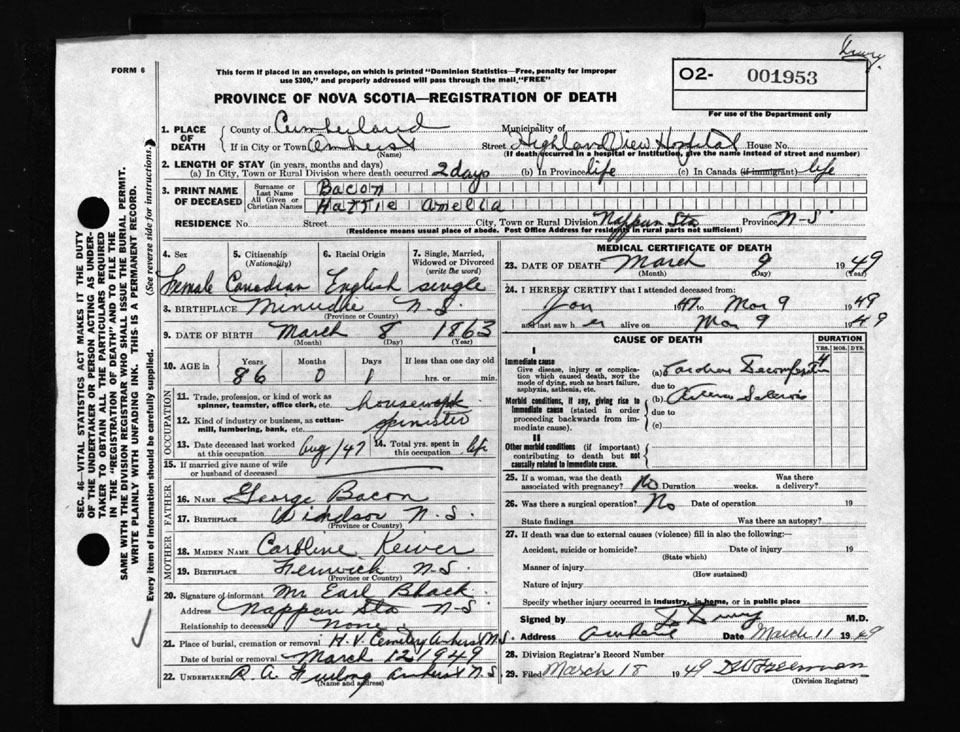 Drury.
FORM 6
This form if placed in an envelope, on which is printed "Dominion Statistics—Free, penalty for improper use $300," and properly addressed will pass through the mail, "FREE"
O2- 001953
For use of the Department only
PROVINCE OF NOVA SCOTIA—REGISTRATION OF DEATH
1. PLACE OF DEATH
County of Cumberland Municipality of
If in City or Town Amherst (Name) Street Highland View Hospital House No.
(If death occurred in a hospital or institution, give the name instead of street and number)
2. LENGTH OF STAY (in years, months and days)
(a) In City, Town or Rural Division where death occurred 2 days (b) In Province life (c) In Canada (if immigrant) life
3. PRINT NAME OF DECEASED
Surname or Last Name Bacon
All Given or Christian Names Hattie Amelia
RESIDENCE No. Street City, Town or Rural Division Nappan Sta Province N-S
(Residence means usual place of abode. Post Office Address for residents in rural parts not sufficient)
4. Sex 5. Citizenship (Nationality) 6. Racial Origin 7. Single, Married, Widowed or Divorced (write the word)
Female Canadian English single
8. BIRTHPLACE Minudie N.S. (Province or Country)
9. DATE OF BIRTH March 8 1863
(Month) (Day) (Year)
10. AGE in Years Months Days If less than one day old
86 0 1 hrs. or min.
OCCUPATION
11. Trade, profession, or kind of work as spinner, teamster, office clerk, etc. housework
12. Kind of industry or business, as cotton-mill, lumbering, bank, etc. spinster
13. Date deceased last worked at this occupation Aug/47 14. Total yrs. spent in this occupation life
15. If married give name of wife or husband of deceased
FATHER
16. NAME George Bacon
17. BIRTHPLACE Windsor N.S.
(Province or Country)
MOTHER
18. MAIDEN NAME Caroline
19. BIRTHPLACE Fenwick N.S.
(Province or Country)
20. Signature of informant Mr Earl Black
Address Nappan Sta N-S
Relationship to deceased None
21. Place of burial, cremation or removal H.V. Cemetery Amherst N.S.
Date of burial or removal March 12 1949
22. UNDERTAKER R. A. Furlong Amherst N.S.
(Name and address)
MEDICAL CERTIFICATE OF DEATH
23. DATE OF DEATH March 9 1949
(Month) (Day) (Year)
24. I HEREBY CERTIFY that I attended deceased from:
Jan 1947 to Mar 9 1949
and last saw her alive on Mar 9 1949
CAUSE OF DEATH DURATION
YRS. MOS. DYS.
I
Immediate cause
Give disease, injury or complication which caused death, NOT the mode of dying, such as heart failure, asphyxia, asthenia, etc.
(a) Cardiac 4
due to
Morbid conditions, if any, giving rise to immediate cause (stated in order proceeding backwards from immediate cause).
(b)
due to
(c)
II
Other morbid conditions (if important) contributing to death but not causally related to immediate cause.
25. If a woman, was the death associated with pregnancy? No Duration weeks. Was there a delivery?
26. Was there a surgical operation? No Date of operation 19
State findings Was there an autopsy?
27. If death was due to external causes (violence) fill in also the following:—
Accident, suicide or homicide? Date of injury 19
(State which)
Manner of injury
(How sustained)
Nature of injury
Specify whether injury occurred in industry, in home, or in public place
Signed by Drury M.D.
Address Amherst Date March 11 1949
28. Division Registrar's Record Number
29. Filed March 18 1949 Freeman
(Division Registrar)
SEC. 46—VITAL STATISTICS ACT MAKES IT THE DUTY
OF THE UNDERTAKER OR PERSON ACTING AS UNDERTAKER TO OBTAIN ALL THE PARTICULARS REQUIRED
IN THE "REGISTRATION OF DEATH" AND TO FILE THE
SAME WITH THE DIVISION REGISTRAR WHO SHALL ISSUE THE BURIAL PERMIT.
WRITE PLAINLY WITH UNFADING INK. THIS IS A PERMANENT RECORD.
Every item of information should be carefully supplied. (See reverse side for instructions.)